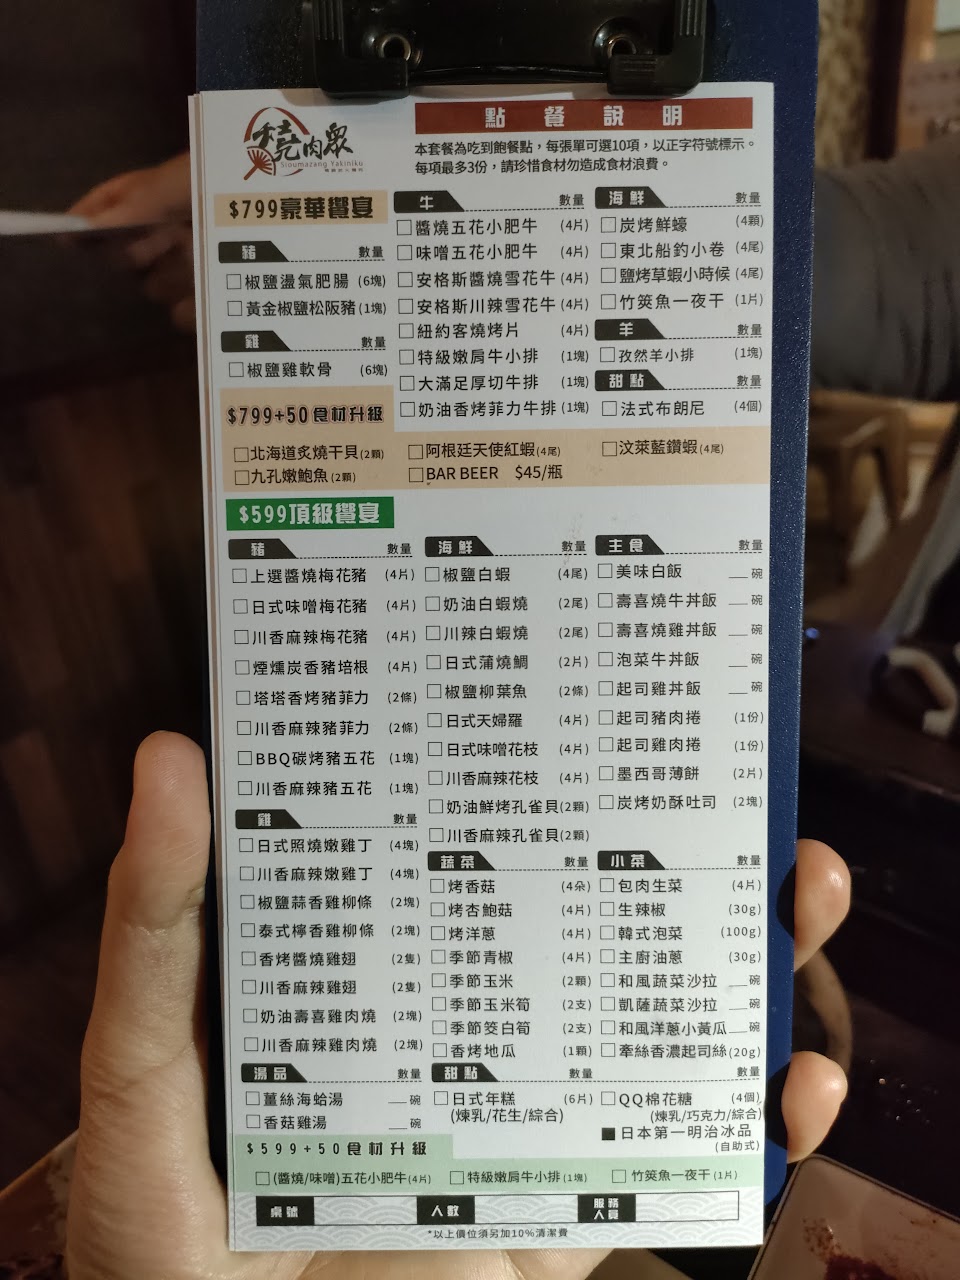 燒肉眾
Sioumazang Yakiniku
點餐說明
本套餐為吃到飽餐點，每張單可選10項，以正字符號標示。
每項最多3份，請珍惜食材勿造成食材浪費。
$799豪華饗宴
豬 數量
□椒鹽盪氣肥腸 (6塊)
□黃金椒鹽松阪豬 (1塊)
雞 數量
□椒鹽雞軟骨 (6塊)
牛 數量
□醬燒五花小肥牛 (4片)
□味噌五花小肥牛 (4片)
□安格斯醬燒雪花牛 (4片)
□安格斯川辣雪花牛 (4片)
□紐約客燒烤片 (4片)
□特級嫩肩牛小排 (1塊)
□大滿足厚切牛排 (1塊)
□奶油香烤菲力牛排 (1塊)
海鮮 數量
□炭烤鮮蠔 (4顆)
□東北船釣小卷 (4尾)
□鹽烤草蝦小時候 (4尾)
□竹筴魚一夜干 (1片)
羊 數量
□孜然羊小排 (1塊)
甜點 數量
□法式布朗尼 (4個)
$799+50食材升級
□北海道炙燒干貝 (2顆)
□阿根廷天使紅蝦 (4尾)
□汶萊藍鑽蝦 (4尾)
□九孔嫩鮑魚 (2顆)
□BAR BEER $45/瓶
$599頂級饗宴
豬 數量
□上選醬燒梅花豬 (4片)
□日式味噌梅花豬 (4片)
□川香麻辣梅花豬 (4片)
□煙燻炭香豬培根 (4片)
□塔塔香烤豬菲力 (2條)
□川香麻辣豬菲力 (2條)
□BBQ碳烤豬五花 (1塊)
□川香麻辣豬五花 (1塊)
雞 數量
□日式照燒嫩雞丁 (4塊)
□川香麻辣嫩雞丁 (4塊)
□椒鹽蒜香雞柳條 (2塊)
□泰式檸香雞柳條 (2塊)
□香烤醬燒雞翅 (2隻)
□川香麻辣雞翅 (2隻)
□奶油壽喜雞肉燒 (2塊)
□川香麻辣雞肉燒 (2塊)
湯品 數量
□薑絲海蛤湯 __碗
□香菇雞湯 __碗
海鮮 數量
□椒鹽白蝦 (4尾)
□奶油白蝦燒 (2尾)
□川辣白蝦燒 (2尾)
□日式蒲燒鯛 (2片)
□椒鹽柳葉魚 (2條)
□日式天婦羅 (4片)
□日式味噌花枝 (4片)
□川香麻辣花枝 (4片)
□奶油鮮烤孔雀貝 (2顆)
□川香麻辣孔雀貝 (2顆)
蔬菜 數量
□烤香菇 (4朵)
□烤杏鮑菇 (4片)
□烤洋蔥 (4片)
□季節青椒 (4片)
□季節玉米 (2顆)
□季節玉米筍 (2支)
□季節筊白筍 (2支)
□香烤地瓜 (1顆)
甜點 數量
□日式年糕 (6片)
(煉乳/花生/綜合)
主食 數量
□美味白飯 __碗
□壽喜燒牛丼飯 __碗
□壽喜燒雞丼飯 __碗
□泡菜牛丼飯 __碗
□起司雞丼飯 __碗
□起司豬肉捲 (1份)
□起司雞肉捲 (1份)
□墨西哥薄餅 (2片)
□炭烤奶酥吐司 (2塊)
小菜 數量
□包肉生菜 (4片)
□生辣椒 (30g)
□韓式泡菜 (100g)
□主廚油蔥 (30g)
□和風蔬菜沙拉 __碗
□凱薩蔬菜沙拉 __碗
□和風洋蔥小黃瓜 __碗
□牽絲香濃起司絲 (20g)
數量
□QQ棉花糖 (4個)
(煉乳/巧克力/綜合)
■日本第一明治冰品
(自助式)
$599+50食材升級
□(醬燒/味噌)五花小肥牛 (4片)
□特級嫩肩牛小排 (1塊)
□竹筴魚一夜干 (1片)
桌號
人數
服務人員
*以上價位須另加10%清潔費